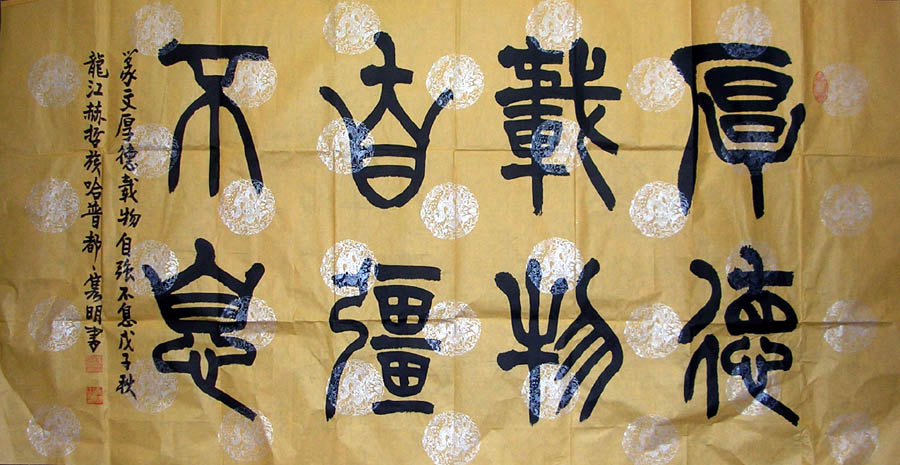 厚德
載物
自彊
不息
篆文厚德载物自强不息戊子秋
龍江赫哲族哈普都·隽明書